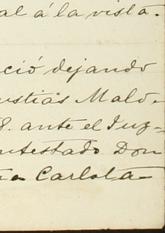 al á la vista.
ció dejando
ustias Malo-
E. ante el Juz-
ntestado Don
a Carlota